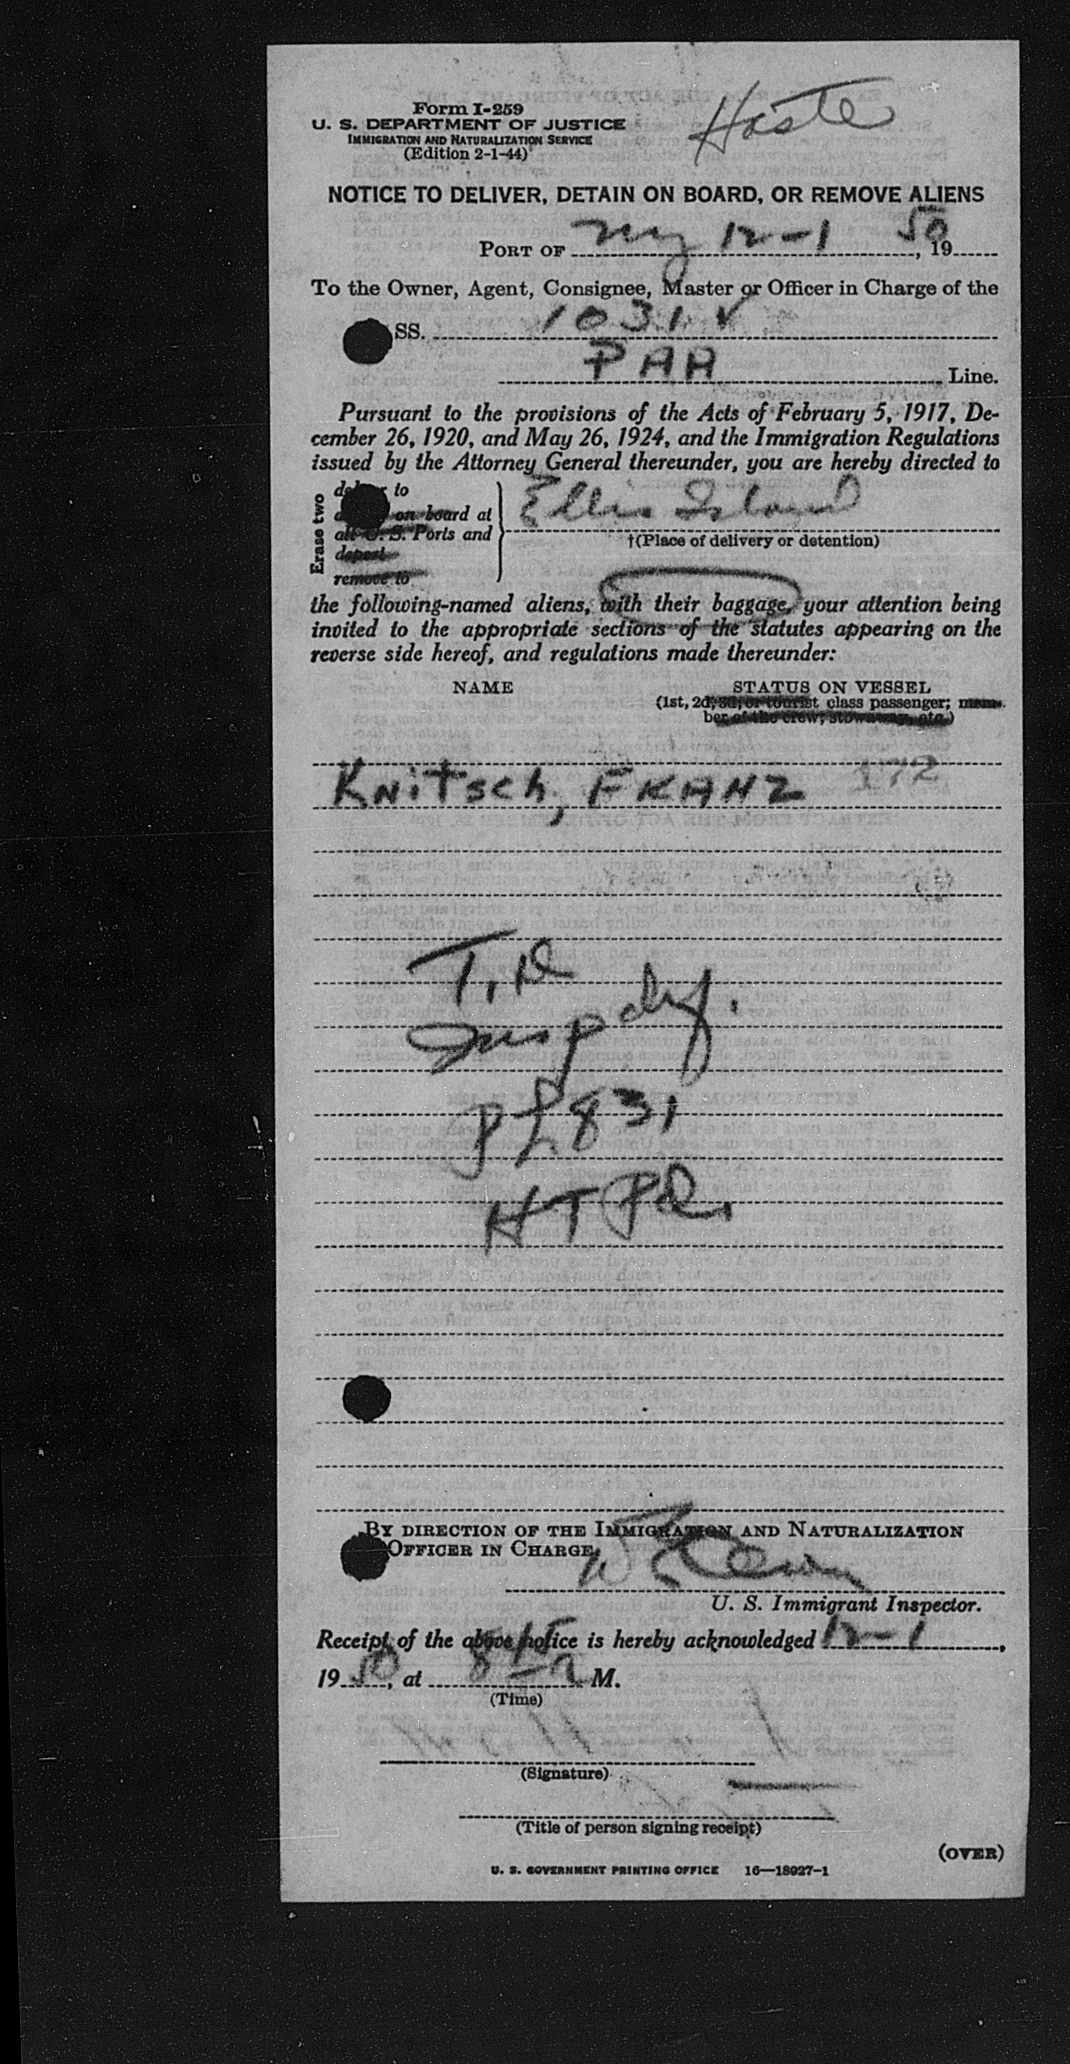 Form I-259
U. S. DEPARTMENT OF JUSTICE
IMMIGRATION AND NATURALIZATION SERVICE
(Edition 2-1-44)
NOTICE TO DELIVER, DETAIN ON BOARD, OR REMOVE ALIENS
PORT OF NY 12-1, 1950
To the Owner, Agent, Consignee, Master or Officer in Charge of the
SS. 1031 V
PAA Line.
Pursuant to the provisions of the Acts of February 5, 1917, De-
cember 26, 1920, and May 26, 1924, and the Immigration Regulations
issued by the Attorney General thereunder, you are hereby directed to
Erase two
to
on board at
all U. S. Ports and
deport
remove to
Ellis Island
†(Place of delivery or detention)
the following-named aliens, with their baggage, your attention being
invited to the appropriate sections of the statutes appearing on the
reverse side hereof, and regulations made thereunder:
NAME STATUS ON VESSEL
(1st, 2d, 3d, or tourist class passenger; mem-
ber of the crew; stowaway, etc.)
Knitsch, FRANZ 172
T. D
Insp
PL 831
HT
BY DIRECTION OF THE IMMIGRATION AND NATURALIZATION
OFFICER IN CHARGE,
U. S. Immigrant Inspector.
Receipt of the above notice is hereby acknowledged 12-1,
1950, at 845 a M.
(Time)
(Signature)
(Title of person signing receipt)
(OVER)
U. S. GOVERNMENT PRINTING OFFICE 16—18927-1